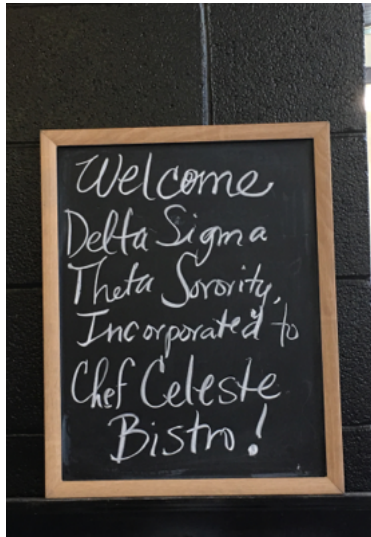 Welcome
Delta Sigma
Theta Sorority,
Incorporated to
Chef Celeste
Bistro!